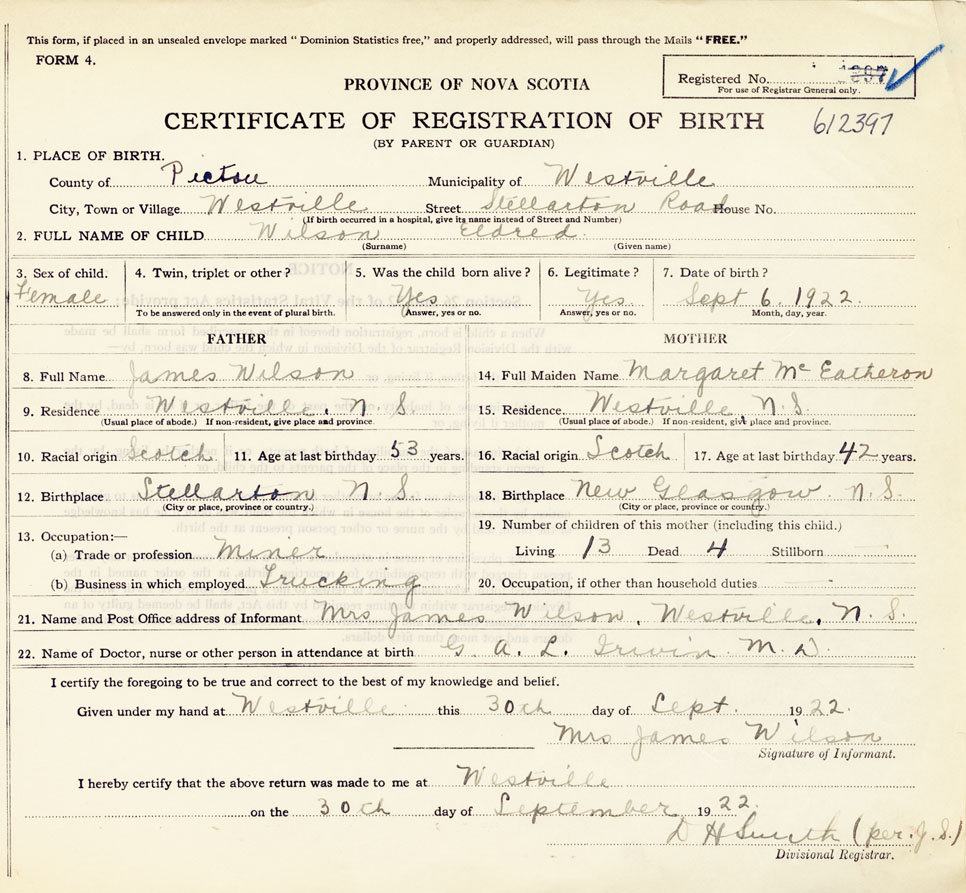 This form, if placed in an unsealed envelope marked " Dominion Statistics free," and properly addressed, will pass through the Mails " FREE."
FORM 4.
Registered No.
For use of Registrar General only.
PROVINCE OF NOVA SCOTIA
CERTIFICATE OF REGISTRATION OF BIRTH 612397
(BY PARENT OR GUARDIAN)
1. PLACE OF BIRTH.
County of Pictou Municipality of Westville
City, Town or Village Westville Street Stellarton Road House No.
(If birth occurred in a hospital, give its name instead of Street and Number)
2. FULL NAME OF CHILD Wilson Eldred
(Surname) (Given name)
3. Sex of child. 4. Twin, triplet or other? 5. Was the child born alive? 6. Legitimate? 7. Date of birth?
Female Yes Yes Sept 6. 1922.
To be answered only in the event of plural birth. Answer, yes or no. Answer, yes or no. Month, day, year.
FATHER MOTHER
8. Full Name James Wilson 14. Full Maiden Name Margaret Mc Eatheron
9. Residence Westville. N S 15. Residence Westville, N.S.
(Usual place of abode.) If non-resident, give place and province. (Usual place of abode.) If non-resident, give place and province.
10. Racial origin Scotch 11. Age at last birthday 53 years. 16. Racial origin Scotch 17. Age at last birthday 42 years.
12. Birthplace Stellarton N S. 18. Birthplace New Glasgow. N.S.
(City or place, province or country.) (City or place, province or country.)
13. Occupation:— 19. Number of children of this mother (including this child.)
(a) Trade or profession Miner Living 13 Dead 4 Stillborn —
(b) Business in which employed Trucking 20. Occupation, if other than household duties -
21. Name and Post Office address of Informant Mrs James Wilson, Westville, N S.
22. Name of Doctor, nurse or other person in attendance at birth G. A. L. Irwin. M.D.
I certify the foregoing to be true and correct to the best of my knowledge and belief.
Given under my hand at Westville this 30th day of Sept. 1922.
Mrs James Wilson
Signature of Informant.
I hereby certify that the above return was made to me at Westville
on the 30th day of September 1922.
D H Smith (per. J.S.)
Divisional Registrar.